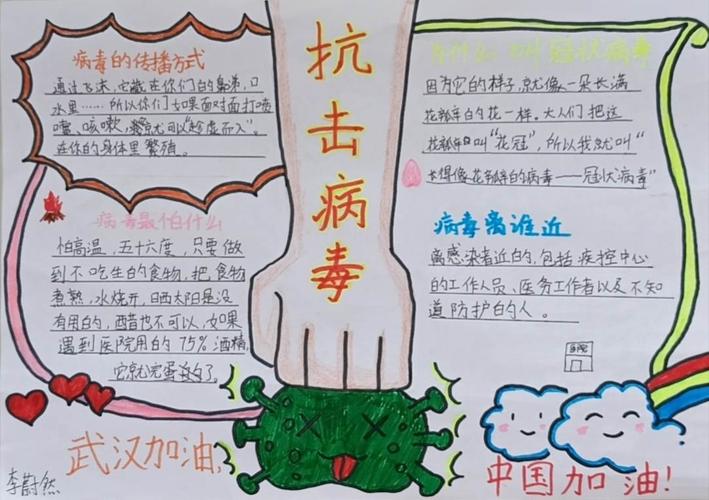 抗击病毒
病毒的传播方式
通过飞沫,它藏在你们的鼻涕,口
水里……所以你们如果面对面打喷
嚏、咳嗽,就可以“趁虚而入”。
在你的身体里繁殖。
病毒最怕什么
怕高温,五十六度,只要做
到不吃生的食物,把食物
煮熟,水烧开,晒太阳是没
有用的,醋也不可以,如果
遇到医院用的75%酒精,
它就完蛋了。
为什么叫冠状病毒
因为它的样子,就像一朵长满
花瓣的花一样。大人们把这
花瓣叫“花冠”,所以我就叫“
长得像花瓣的病毒——冠状病毒”
病毒离谁近
离感染者近的,包括疾控中心
的工作人员、医务工作者以及不知
道防护的人。
武汉加油!
中国加油!
李蔚然